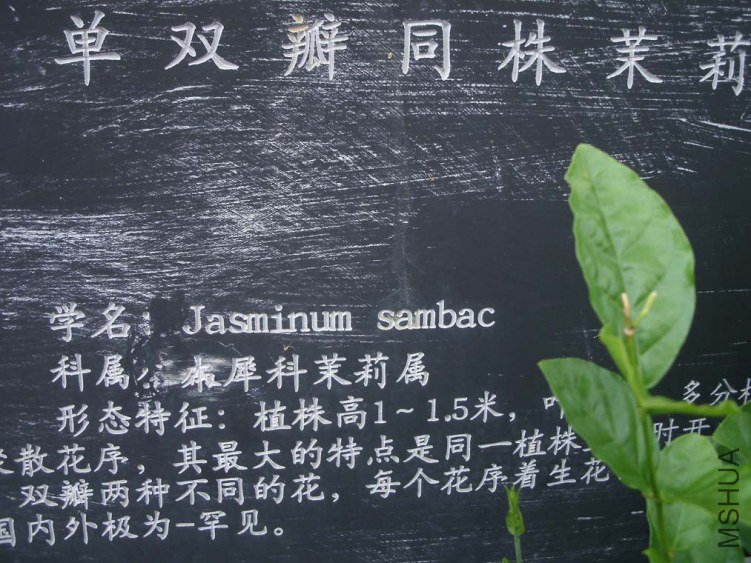 单双瓣同株茉莉
学名: Jasminum sambac
科属:木犀科茉莉属
形态特征: 植株高1~1.5米, 多分
散花序, 其最大的特点是同一植株 时开
双瓣两种不同的花, 每个花序着生花
国内外极为-罕见。
MSHUA